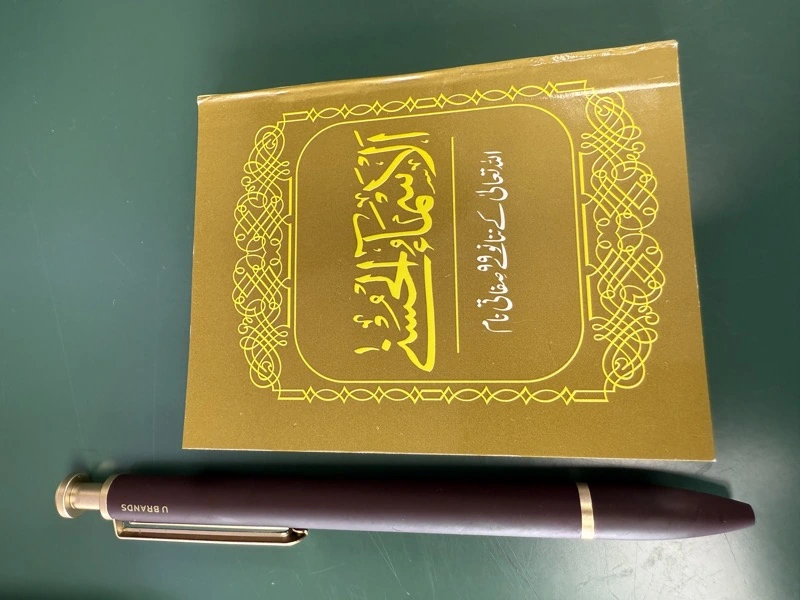 الاسمآء الحسنى
اللہ تعالیٰ کے ننانوے ۹۹ صفاتی نام
U BRANDS